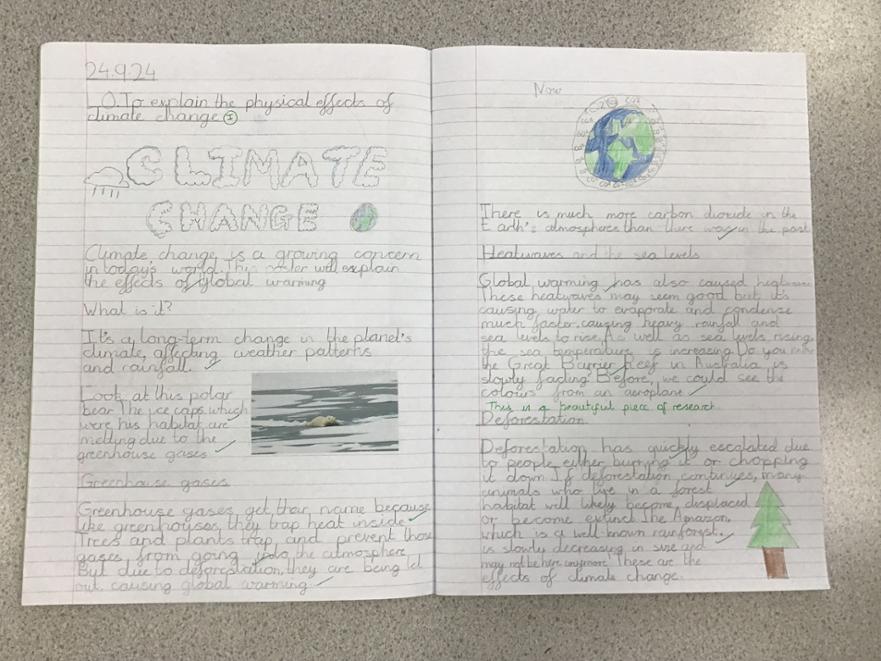 24.9.24
L.O.To explain the physical effects of
climate change I
CLIMATE
CHANGE
Climate change is a growing concern
in today's world. This poster will explain
the effects of global warming
What is it?
It's a long-term change in the planet's
climate, affecting weather patterns
and rainfall.
Look at this polar
bear. The ice caps which
were his habitat are
melting due to the
greenhouse gases
Greenhouse gases
Greenhouse gases get their name because
like greenhouses, they trap heat inside.
Trees and plants trap and prevent those
gases from going into the atmosphere
But due to deforestation, they are being let
out causing global warming.
Now
There is much more carbon dioxide in the
Earth's atmosphere than there was in the past
Heatwaves and the sea levels
Global warming has also caused
These heatwaves may seem good but it's
causing water to evaporate and condense
much faster, causing heavy rainfall and
sea levels to rise. As well as sea levels rising,
the sea temperature is increasing. Do you
the Great Barrier Reef in Australia is
slowly fading. Before, we could see the
colours from an aeroplane
This is a beautiful piece of research
Deforestation
Deforestation has quickly escalated due
to people either burning it or chopping
it down. If deforestation continues, many
animals who live in a forest
habitat will likely become displaced
or become extinct. The Amazon,
which is a well known rainforest,
is slowly decreasing in size and
may not be here anymore. These are the
effects of climate change.